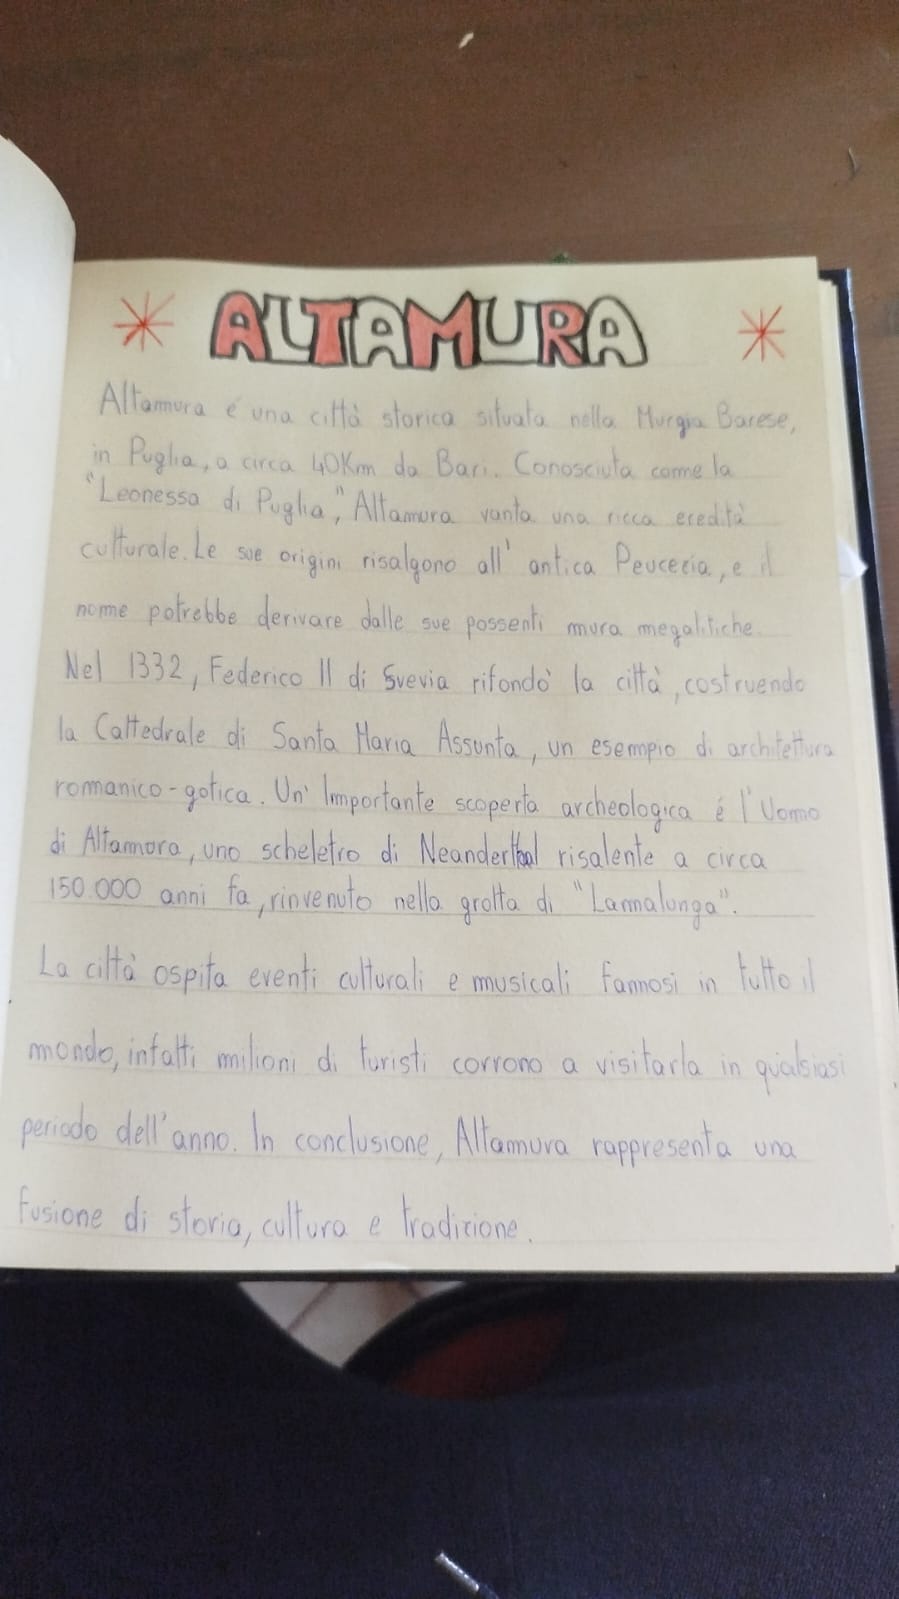 ALTAMURA
Altamura é una città storica situata nella Murgia Barese,
in Puglia, a circa 40Km da Bari. Conosciuta come la
"Leonessa di Puglia", Altamura vanta una ricca eredità
culturale. Le sue origini risalgono all'antica Peucezia, e il
nome potrebbe derivare dalle sue possenti mura megalitiche.
Nel 1332, Federico II di Svevia rifondò la città, costruendo
la Cattedrale di Santa Maria Assunta, un esempio di architettura
romanico-gotica. Un' Importante scoperta archeologica é l'Uomo
di Altamura, uno scheletro di Neanderthal risalente a circa
150.000 anni fa, rinvenuto nella grotta di "Lamalunga".
La città ospita eventi culturali e musicali famosi in tutto il
mondo, infatti milioni di turisti corrono a visitarla in qualsiasi
periodo dell'anno. In conclusione, Altamura rappresenta una
fusione di storia, cultura e tradizione.